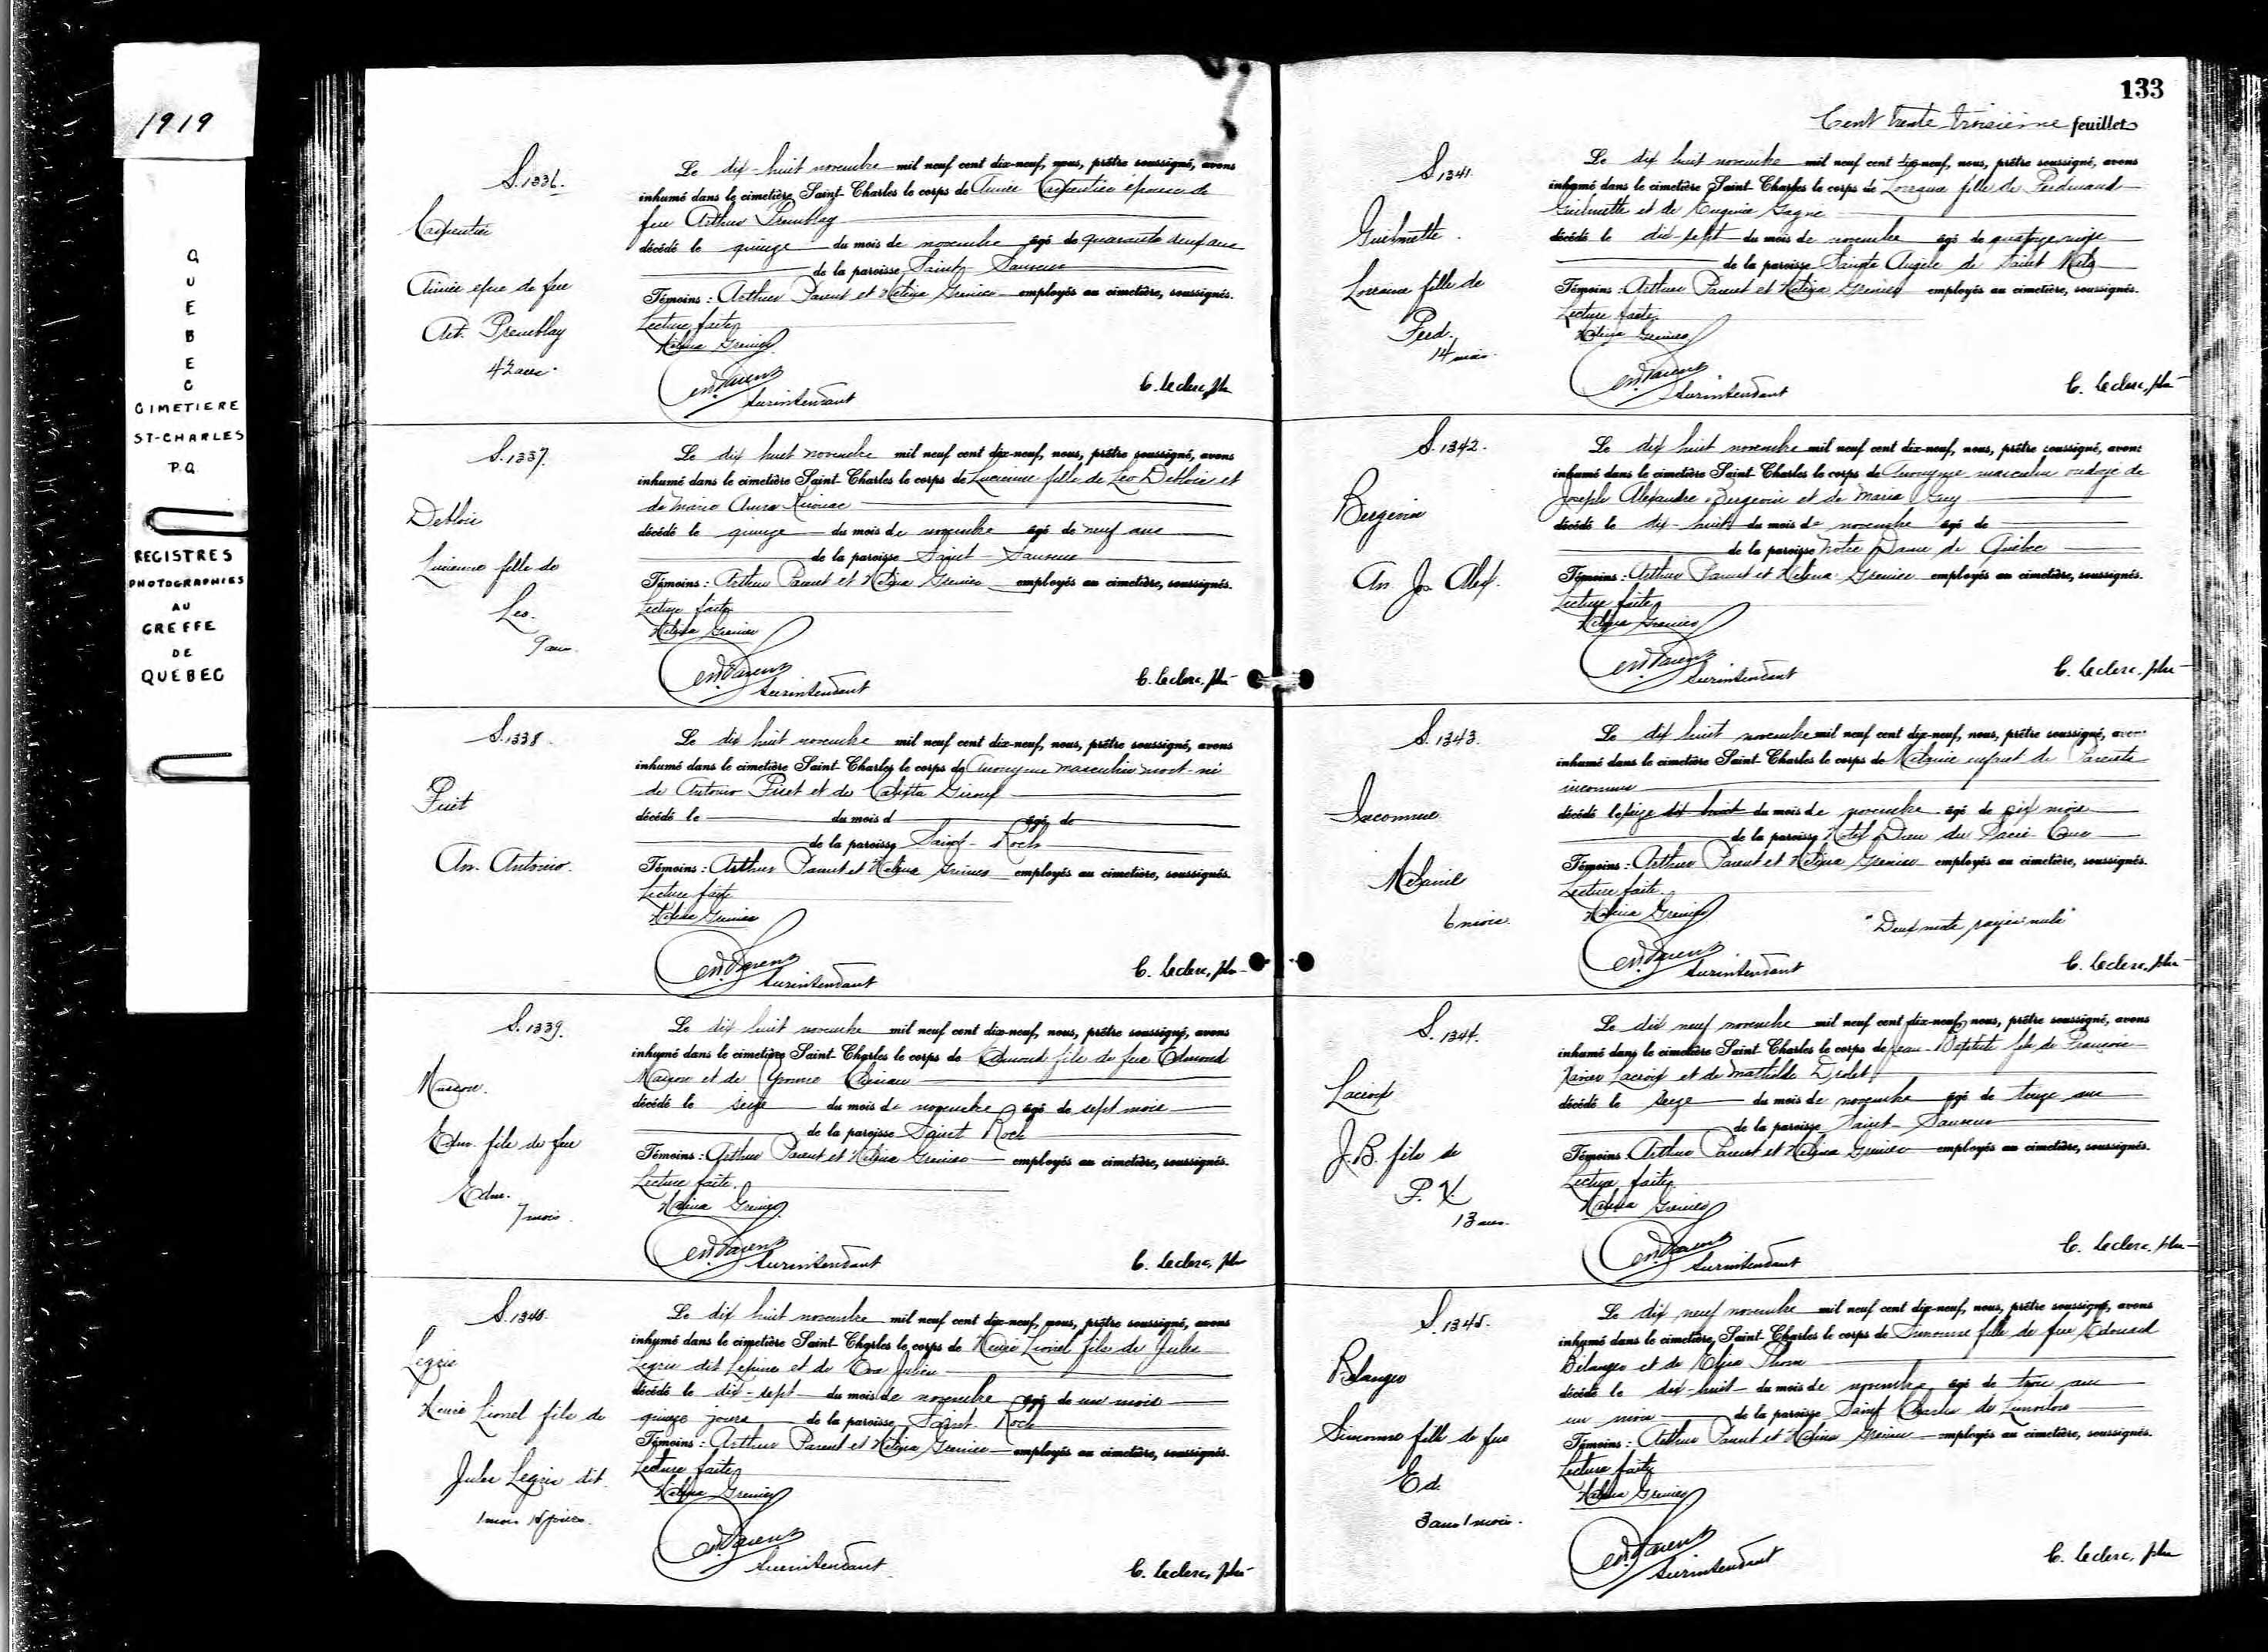 1919
QUEBEC
CIMETIERE
ST-CHARLES
P.Q.
REGISTRES
PHOTOGRAPHIES
AU
GREFFE
DE
QUEBEC
S. 1336.
Carpentier
Aimée épse de feu
Art. Tremblay
42 ans.
Le dix-huit novembre mil neuf cent dix-neuf, nous, prêtre soussigné, avons
inhumé dans le cimetière Saint-Charles le corps de Aimée Carpentier épouse de
feu Arthur Tremblay
décédé le quinze du mois de novembre âgé de quarante deux ans
de la paroisse Saint-Sauveur
Témoins : Arthur Parent et Helina Grenier employés au cimetière, soussignés.
Lecture faite,
Helina Grenier
Parent
Surintendant
C. Leclerc, ptre
S. 1337.
Deblois
Lucienne fille de
Leo.
9 ans.
Le dix huit novembre mil neuf cent dix-neuf, nous, prêtre soussigné, avons
inhumé dans le cimetière Saint-Charles le corps de Lucienne fille de Leo Deblois et
de Marie Anna
décédé le quinze du mois de novembre âgé de neuf ans
de la paroisse Saint-Sauveur
Témoins : Arthur Parent et Helina Grenier employés au cimetière, soussignés.
Lecture faite
Helina Grenier
Parent
Surintendant
C. Leclerc, ptre
S. 1338.
An. Antonio.
Le dix huit novembre mil neuf cent dix-neuf, nous, prêtre soussigné, avons
inhumé dans le cimetière Saint-Charles le corps de Anonyme masculin mort-né
de Antonio et de Calixta Giroux
décédé le du mois d âgé de
de la paroisse Saint-Roch
Témoins : Arthur Parent et Helina Grenier employés au cimetière, soussignés.
Lecture faite
Helina Grenier
Parent
Surintendant
C. Leclerc, ptre
S. 1339.
Edm. fils de feu
Edm.
7 mois.
Le dix huit novembre mil neuf cent dix-neuf, nous, prêtre soussigné, avons
inhumé dans le cimetière Saint-Charles le corps de Edmond fils de feu Edmond
et de Yvonne
décédé le seize du mois de novembre âgé de sept mois
de la paroisse Saint Roch
Témoins : Arthur Parent et Helina Grenier employés au cimetière, soussignés.
Lecture faite.
Helina Grenier
Parent
Surintendant
C. Leclerc, ptre
S. 1340.
Legris
Henri Lionel fils de
Jules Legris dit
1 mois 15 jours.
Le dix huit novembre mil neuf cent dix-neuf, nous, prêtre soussigné, avons
inhumé dans le cimetière Saint-Charles le corps de Henri Lionel fils de Jules
Legris dit Lépine et de Eva Julien
décédé le dix-sept du mois de novembre âgé de un mois
quinze jours de la paroisse Saint Roch
Témoins : Arthur Parent et Helina Grenier employés au cimetière, soussignés.
Lecture faite,
Helina Grenier
Parent
Surintendant
C. Leclerc, ptre
133
Cent trente troisième feuillet
S. 1341.
Guilmette.
Lorraine fille de
Ferd.
14 mois.
Le dix huit novembre mil neuf cent dix-neuf, nous, prêtre soussigné, avons
inhumé dans le cimetière Saint-Charles le corps de Lorraine fille de Ferdinand
Guilmette et de Eugénie Gagné
décédé le dix sept du mois de novembre âgé de quatorze mois
de la paroisse Sainte Angèle de Saint Malo
Témoins : Arthur Parent et Helina Grenier employés au cimetière, soussignés.
Lecture faite.
Helina Grenier
Parent
Surintendant
C. Leclerc, ptre
S. 1342.
Bergevin
An Jos Alex.
Le dix huit novembre mil neuf cent dix-neuf, nous, prêtre soussigné, avons
inhumé dans le cimetière Saint-Charles le corps de Anonyme masculin ondoyé de
Joseph Alexandre Bergevin et de Maria Guy
décédé le dix-huit du mois de novembre âgé de
de la paroisse Notre Dame de Québec
Témoins : Arthur Parent et Helina Grenier employés au cimetière, soussignés.
Lecture faite
Helina Grenier
Parent
Surintendant
C. Leclerc, ptre
S. 1343.
Inconnue
Mélanie
6 mois.
Le dix huit novembre mil neuf cent dix-neuf, nous, prêtre soussigné, avons
inhumé dans le cimetière Saint-Charles le corps de Mélanie enfant de Parents
inconnus
décédé le seize dix huit du mois de novembre âgé de six mois
de la paroisse Hotel Dieu du Sacré-Cœur
Témoins : Arthur Parent et Helina Grenier employés au cimetière, soussignés.
Lecture faite.
Helina Grenier
"Deux mots rayés nuls"
Parent
Surintendant
C. Leclerc, ptre
S. 1344.
Lacroix
J.B. fils de
F. X.
13 ans.
Le dix neuf novembre mil neuf cent dix-neuf, nous, prêtre soussigné, avons
inhumé dans le cimetière Saint-Charles le corps de Jean-Baptiste fils de François
Xavier Lacroix et de Mathilde Drolet
décédé le seize du mois de novembre âgé de treize ans
de la paroisse Saint-Sauveur
Témoins : Arthur Parent et Helina Grenier employés au cimetière, soussignés.
Lecture faite,
Helina Grenier
Parent
Surintendant
C. Leclerc, ptre
S. 1345.
Belanger
Simonne fille de feu
Ed.
3 ans 1 mois.
Le dix neuf novembre mil neuf cent dix-neuf, nous, prêtre soussigné, avons
inhumé dans le cimetière Saint-Charles le corps de Simonne fille de feu Edouard
Bélanger et de
décédé le dix-huit du mois de novembre âgé de trois ans
un mois de la paroisse Saint Charles de Limoilou
Témoins : Arthur Parent et Helina Grenier employés au cimetière, soussignés.
Lecture faite
Helina Grenier
Parent
Surintendant
C. Leclerc, ptre